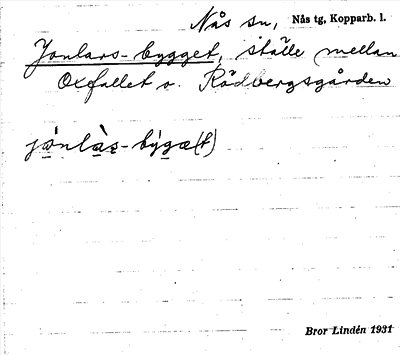 Nås sn, Nås tg, Kopparb. l.
Jonlars-bygget, ställe mellan
Oxfallet o. Rödbergsgården
jónlàs-býgæ(t)
Bror Lindén 1931